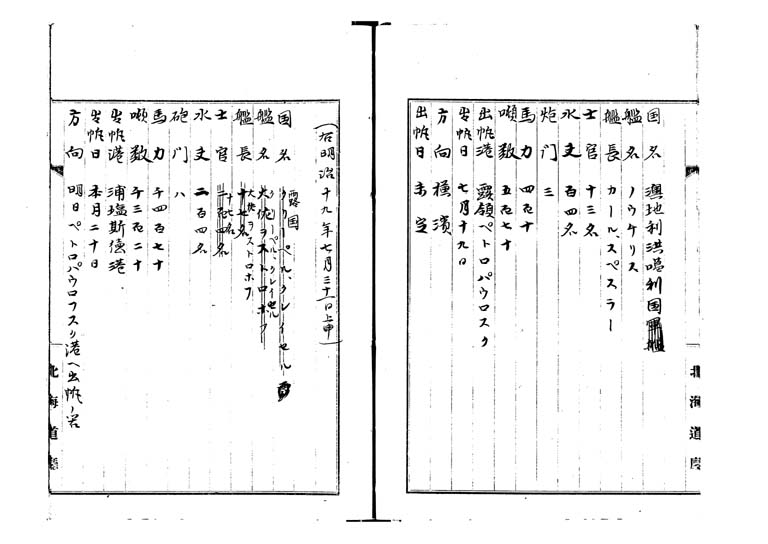 国名 澳地利洪噶利国軍艦
艦名 ノウケリス
艦長 カール、スペスラー
士官 十三名
水夫 百四名
炮门 三
馬力 四百十
噸数 五百七十
出帆港 露領ペトロパウロスク
出帆日 七月十九日
方向 横濱
出帆日 未定
北海道廰
(右明治十九年七月三十一日上申)
国名 露国
艦名 クリーペル、クレイセル
艦長 大佐ヲストロホフ
士官 十七名
水夫 二百四名
砲门 八
馬力 千四百七十
噸数 千三百二十
出帆港 浦塩斯徳港
出帆日 本月二十日
方向 明日ペトロパウロフスク港ヘ出帆ノ筈
北海道廰